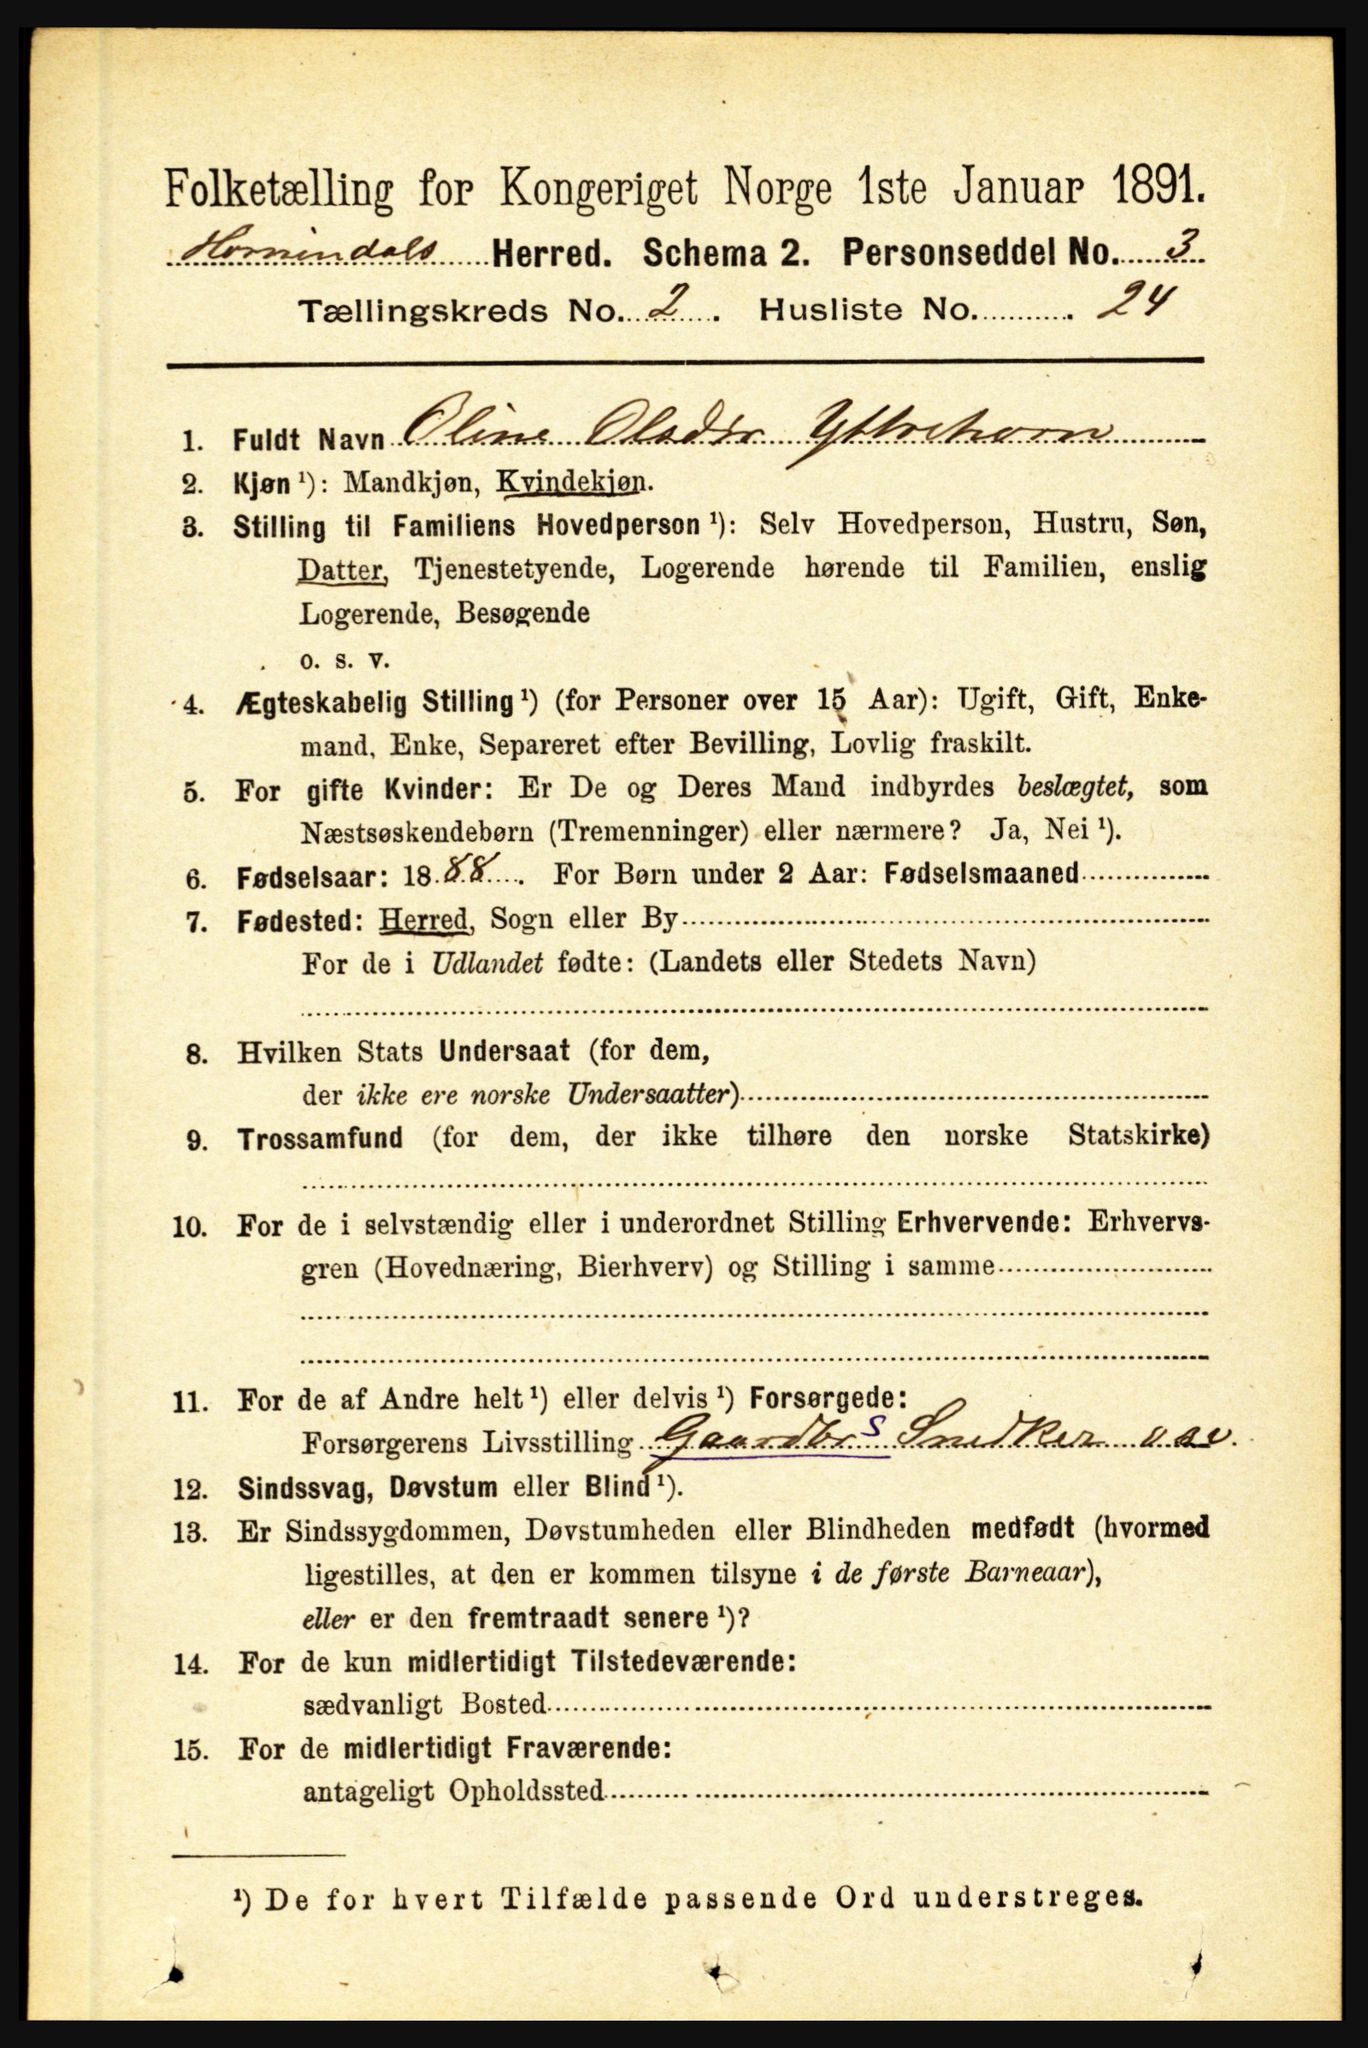 Folketælling for Kongeriget Norge 1ste Januar 1891.
Hornindals Herred. Schema 2. Personseddel No. 3
Tællingskreds No. 2. Husliste No. 24
1. Fuldt Navn Oline Olsdtr Yttrehorn
2. Kjøn ¹): Mandkjøn, Kvindekjøn.
3. Stilling til Familiens Hovedperson ¹): Selv Hovedperson, Hustru, Søn,
Datter, Tjenestetyende, Logerende hørende til Familien, enslig
Logerende, Besøgende
o. s. v.
4. Ægteskabelig Stilling ¹) (for Personer over 15 Aar): Ugift, Gift, Enke-
mand, Enke, Separeret efter Bevilling, Lovlig fraskilt.
5. For gifte Kvinder: Er De og Deres Mand indbyrdes beslægtet, som
Næstsøskendebørn (Tremenninger) eller nærmere? Ja, Nei ¹).
6. Fødselsaar: 1888. For Børn under 2 Aar: Fødselsmaaned
7. Fødested: Herred, Sogn eller By
For de i Udlandet fødte: (Landets eller Stedets Navn)
8. Hvilken Stats Undersaat (for dem,
der ikke ere norske Undersaatter)
9. Trossamfund (for dem, der ikke tilhøre den norske Statskirke)
10. For de i selvstændig eller i underordnet Stilling Erhvervende: Erhvervs-
gren (Hovednæring, Bierhverv) og Stilling i samme
11. For de af Andre helt ¹) eller delvis ¹) Forsørgede:
Forsørgerens Livsstilling Gaardbr S Snedker osv.
12. Sindssvag, Døvstum eller Blind ¹).
13. Er Sindssygdommen, Døvstumheden eller Blindheden medfødt (hvormed
ligestilles, at den er kommen tilsyne i de første Barneaar),
eller er den fremtraadt senere ¹)?
14. For de kun midlertidigt Tilstedeværende:
sædvanligt Bosted
15. For de midlertidigt Fraværende:
antageligt Opholdssted
¹) De for hvert Tilfælde passende Ord understreges.